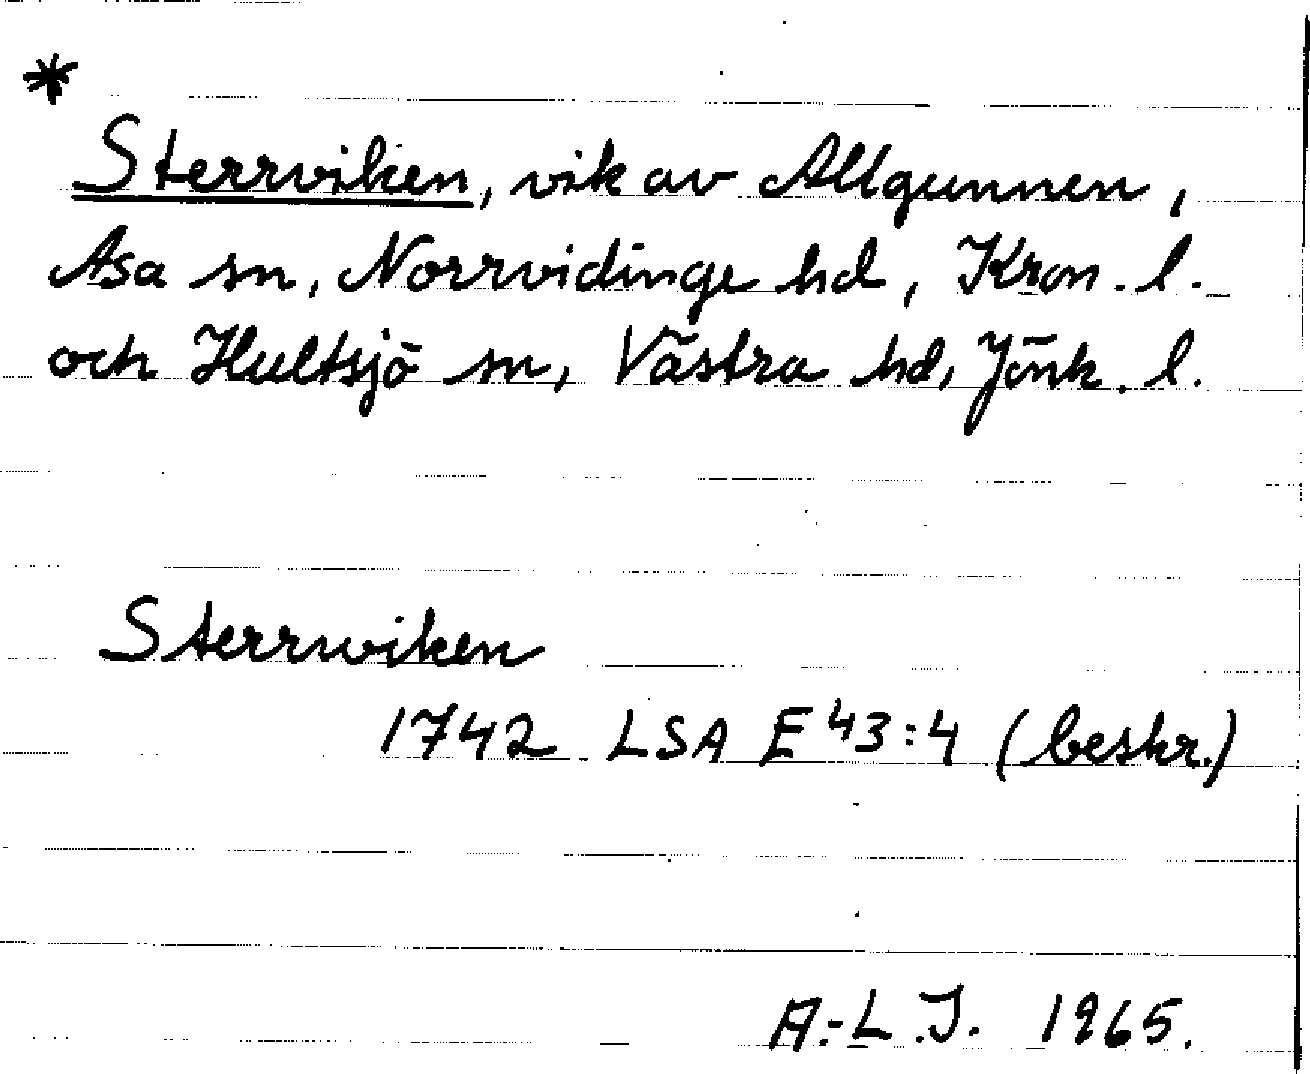 *
Sterrviken, vik av Allgunnen,
Asa sn, Norrvidinge hd, Kron. l.
och Hultsjö sn, Västra hd, Jönk. l.
Sterrwiken
1742 LSA E 43:4 (beskr.)
A.-L.J. 1965.